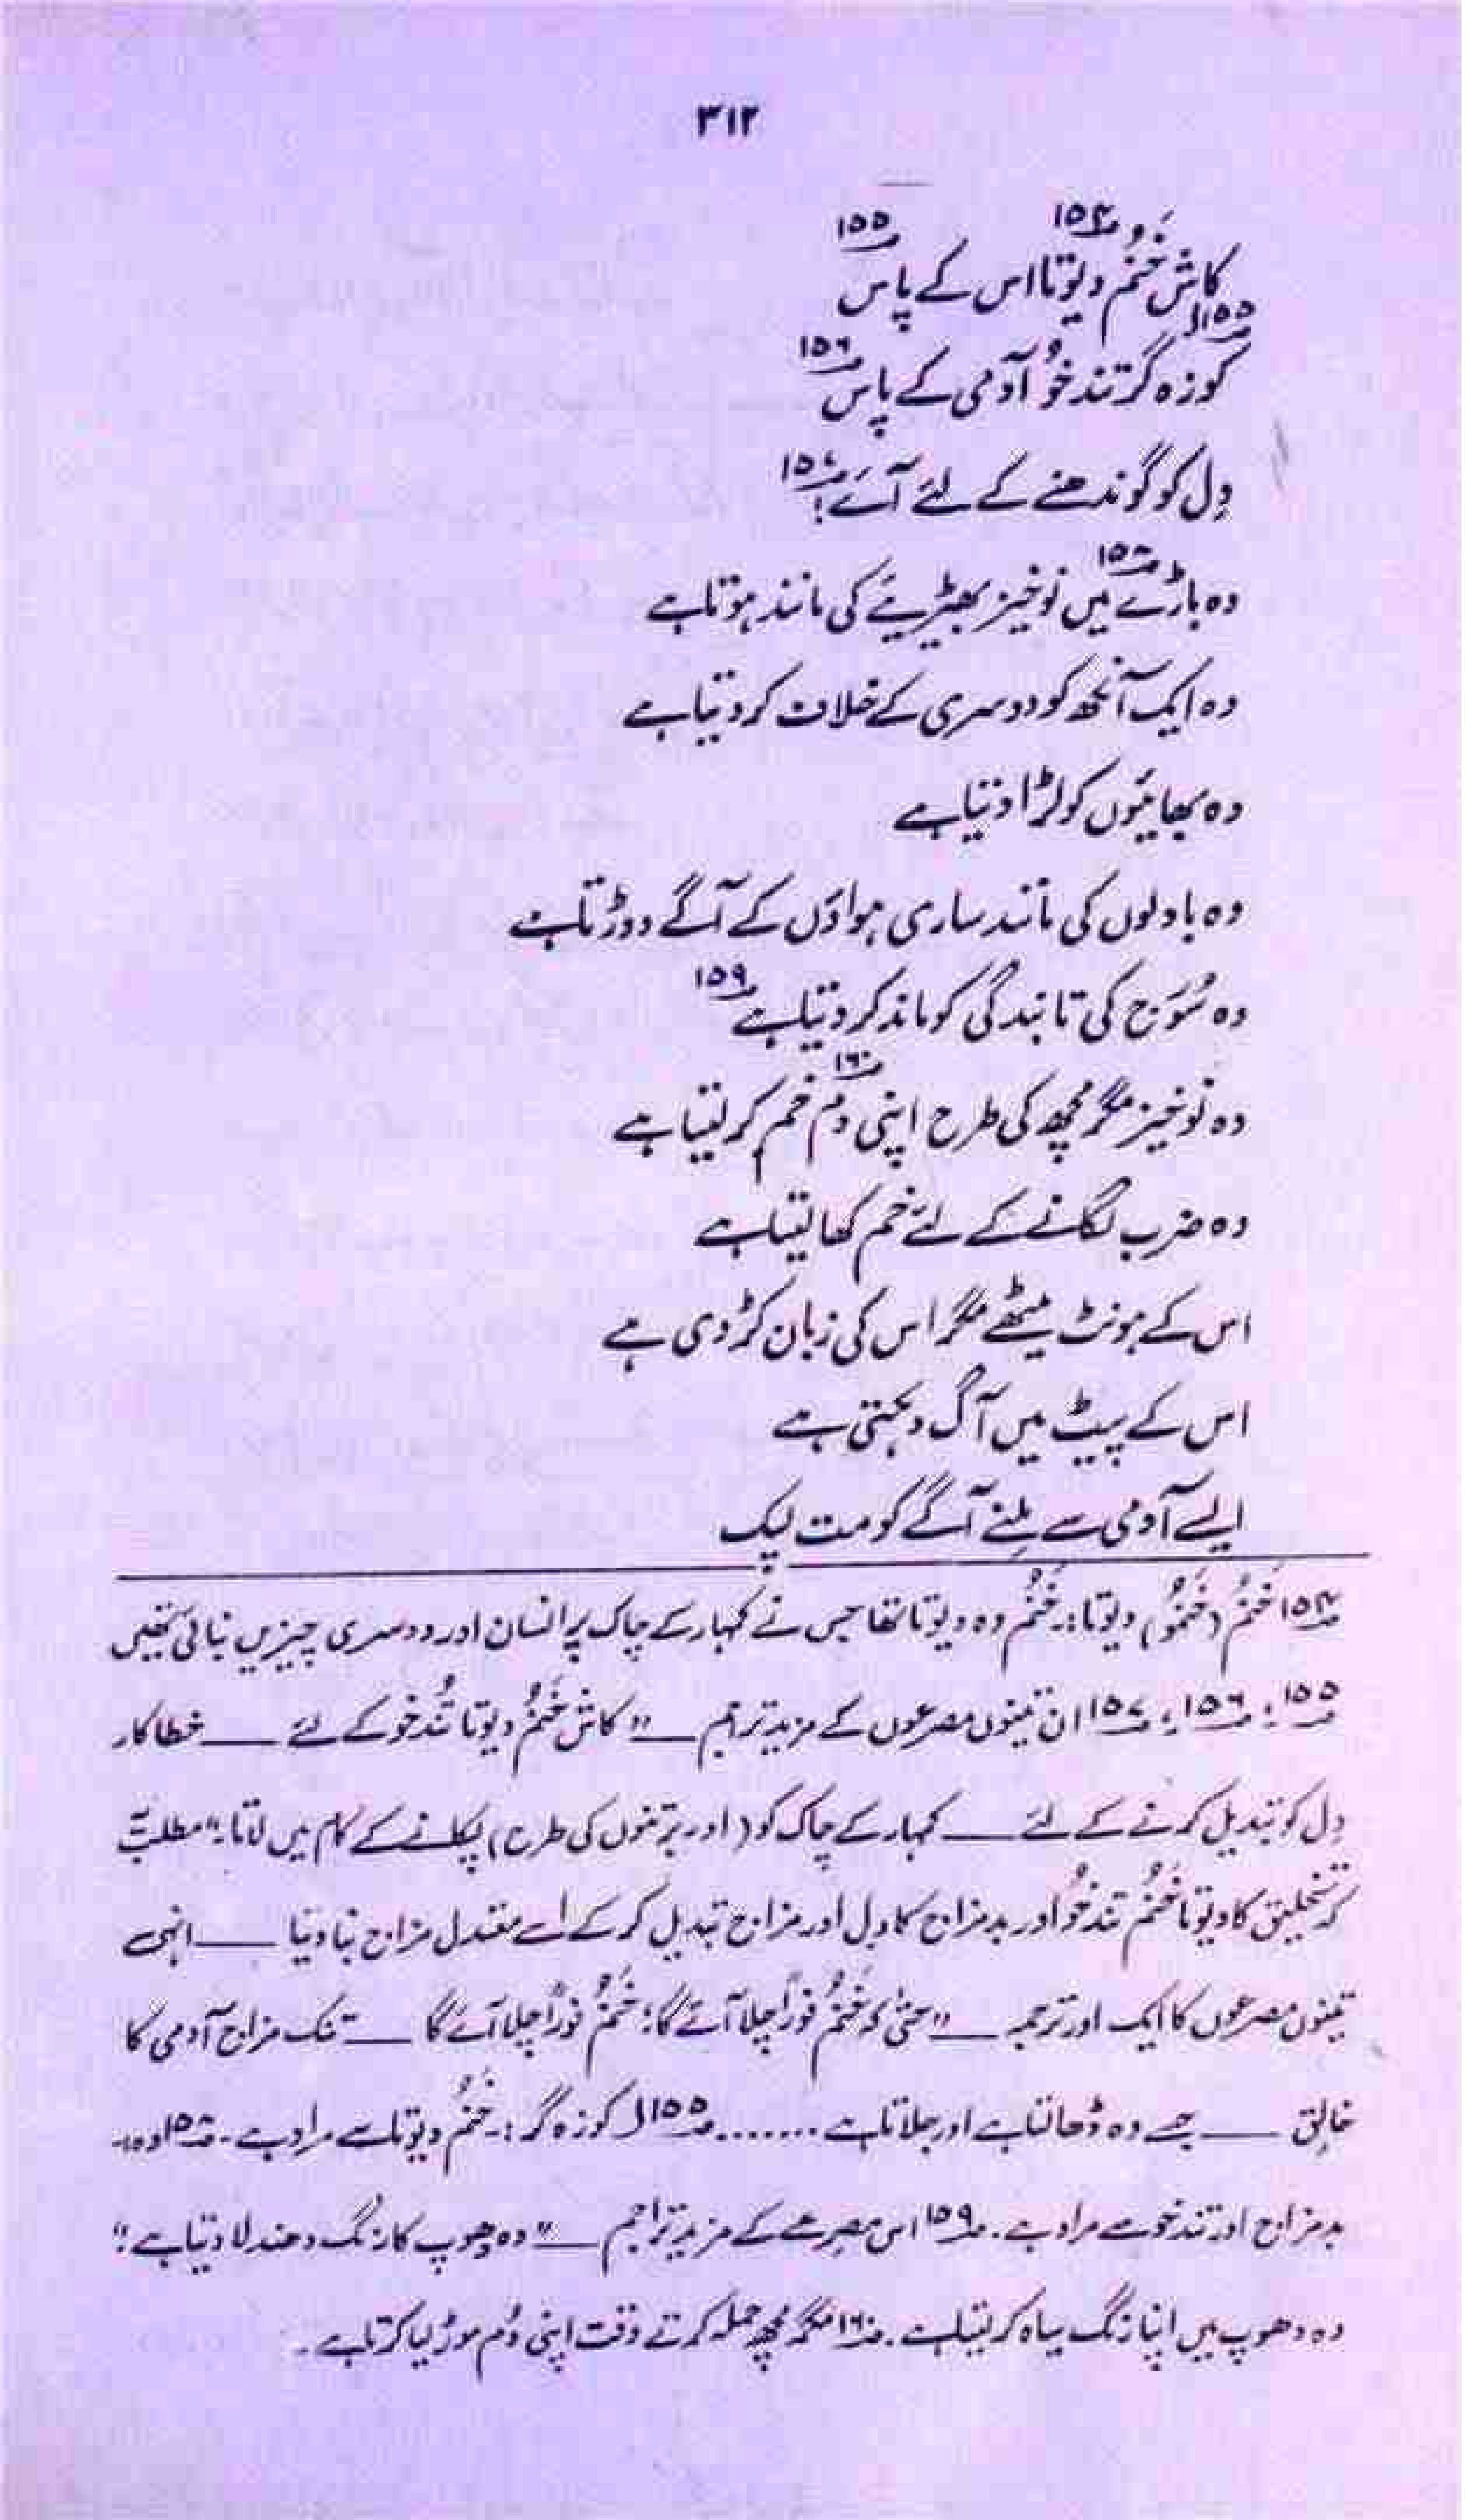 ۳۱۲
کاش خَنُم ۱۵۴ دیوتا اس کے پاس ۱۵۵
کوزہ گر ۱۵۵ل تند خُو آدمی کے پاس ۱۵۶
دِل کو گوندھنے کے لئے آئے؛ ۱۵۷
وہ باڑے ۱۵۸ میں نوخیز بھیڑیئے کی مانند ہوتا ہے
وہ ایک آنکھ کو دوسری کے خلاف کر دیتا ہے
وہ بھائیوں کو لڑا دیتا ہے
وہ بادلوں کی مانند ساری ہواؤں کے آگے دوڑتا ہے
وہ سُورَج کی تابندگی کو ماند کر دیتا ہے ۱۵۹
وہ نوخیز مگرمچھ کی طرح اپنی دُم ۱۶۰ خم کر لیتا ہے
وہ ضرب لگانے کے لئے خم کھا لیتا ہے
اس کے ہونٹ میٹھے مگر اس کی زبان کڑوی ہے
اس کے پیٹ میں آگ دہکتی ہے
ایسے آدمی سے مِلنے آگے کو مت لپک
۱۵۴ خَنُم (خَنمُو) دیوتا:۔ خَنُم وہ دیوتا تھا جس نے کمہار کے چاک پر انسان اور دوسری چیزیں بنائی تھیں
۱۵۵، ۱۵۶، ۱۵۷ ان تینوں مصرعوں کے مزید تراجم ــــ "کاش خَنُم دیوتا تُند خو کے لئے ــــ خطا کار
دِل کو تبدیل کرنے کے لئے ــــ کمہار کے چاک کو (اور برتنوں کی طرح) پکانے کے کام میں لاتا:" مطلب
کہ تخلیق کا دیوتا خَنُم تند خُو اور بد مزاج کا دِل اور مزاج تبدیل کر کے اسے معتدل مزاج بنا دیتا ــــ انہی
تینوں مصرعوں کا ایک اور ترجمہ ــــ "حتیٰ کہ خَنُم فوراً چلا آئے گا؛ خَنُم فوراً چلا آئے گا ــــ تنک مزاج آدمی کا
خالق ــــ جسے وہ ڈھالتا ہے اور جلاتا ہے ....... ۱۵۵ل کوزہ گر:۔ خَنُم دیوتا سے مراد ہے۔ ۱۵۸ وہ:۔
بد مزاج اور تند خو سے مراد ہے۔ ۱۵۹ اس مصرعے کے مزید تراجم ــــ "وہ دھوپ کا رنگ دھندلا دیتا ہے؛"
وہ دھوپ میں اپنا رنگ سیاہ کر لیتا ہے۔ ۱۶۰ مگرمچھ حملہ کرتے وقت اپنی دُم موڑ لیا کرتا ہے۔